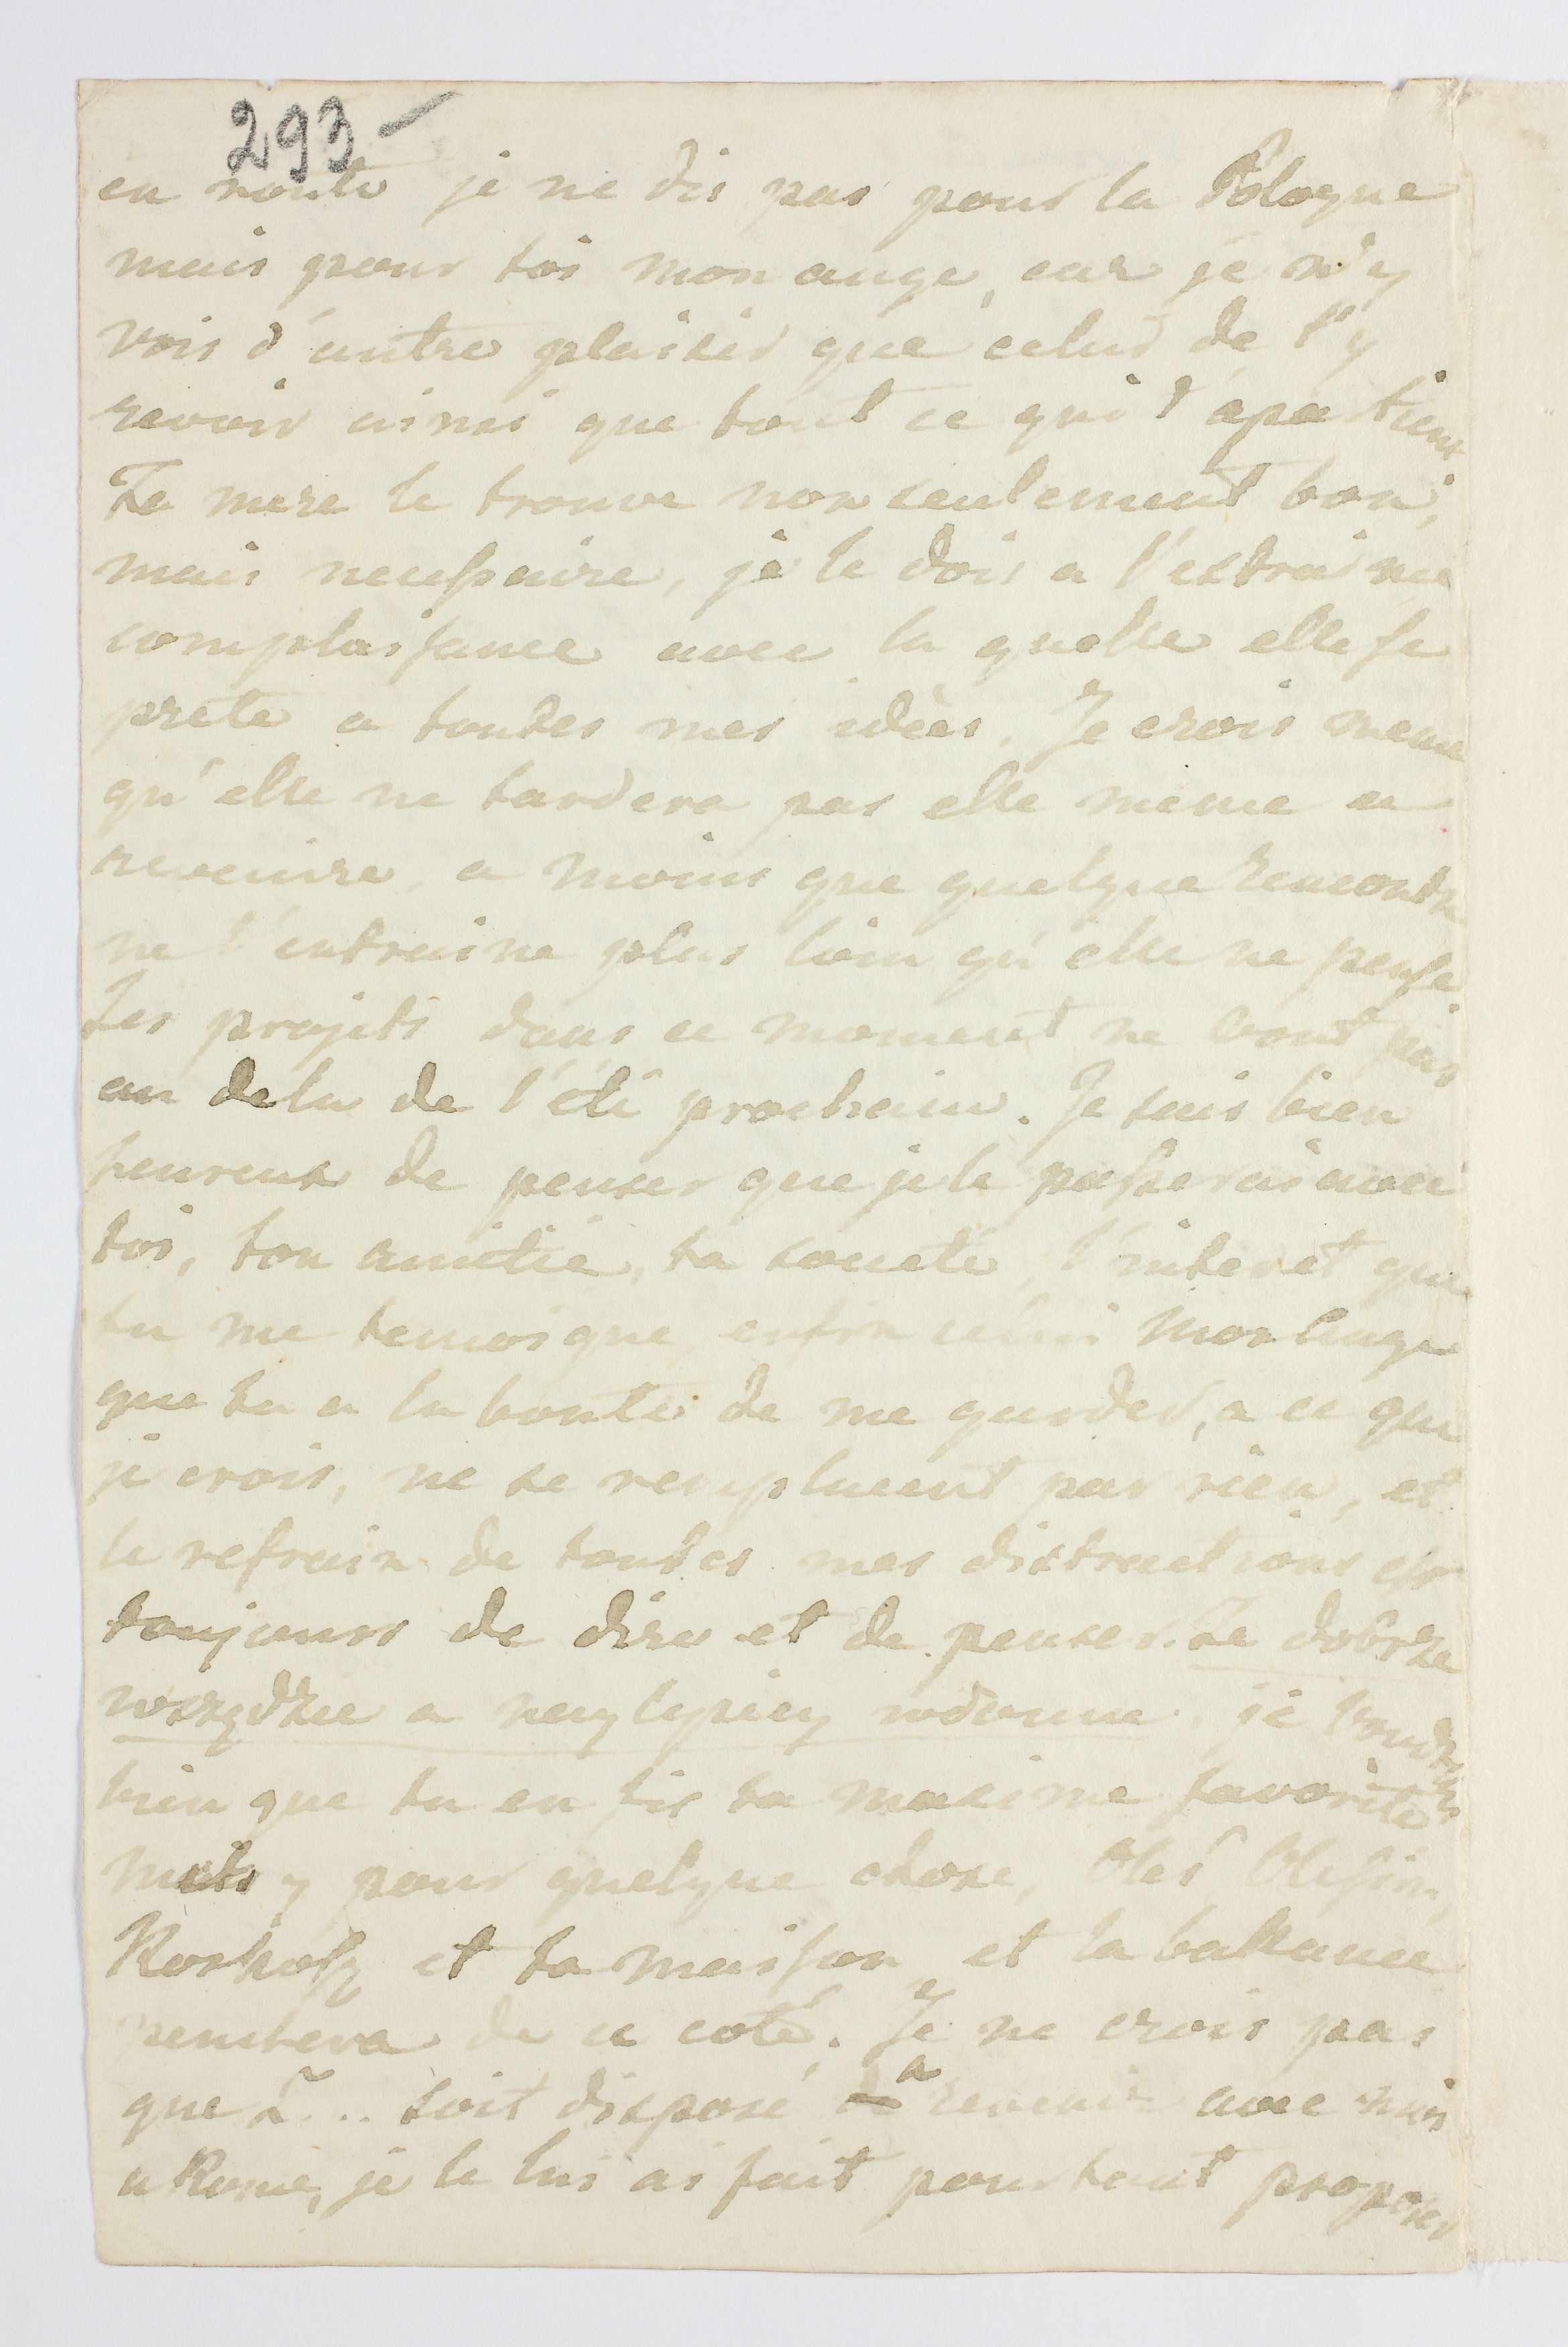 293 –
en route je ne dis pas pour la Pologne
mais pour toi mon ange, car je n'y
vois d'autre plaisir que celui de t'y
revoir ainsi que tout ce qui t'apartient
Ta mere le trouve non seulement bon,
mais nenssaire, je le dois a l'extraime
complaisance avec la quelle elle se
prete a toutes mes idèes. Je crois meme
qu'elle ne tardera pas elle meme a
revenire, a moins que quelque rencontre
ne l'entraine plus loin qu'elle ne pense.
Les projets dans ce moment ne vont pas
au dela de l'été prochain. Je suis bien
heureux de penser que je le passerai avec
toi, ton amitié, ta societé, l'interet que
tu me temoigne, enfin celui mon Ange
que tu a la bonté de me garder, a ce que
je crois, ne se remplacent par rien, et
le refrain de toutes mes distractions est
toujours de dire et de penser. Ze dobrze
wszędzie a neylepiey wdomu. je voudrais
bien que tu en fis ta maxime favorite
mets y pour quelque chose, Oleś Olesin,
et ta maison et la balance
penchera de ce coté. Je ne crois pas
que ... soit disposé a revenir avec moi
a Rome, je le lui ai fait pourtant proposer